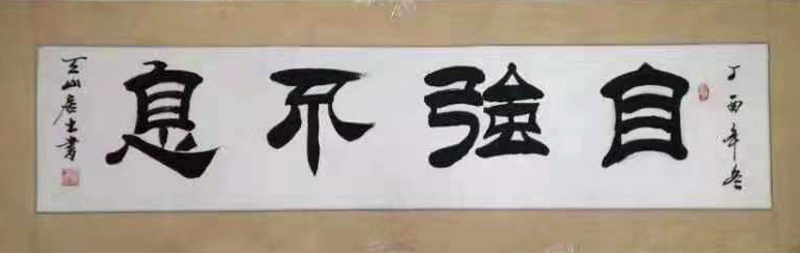 丁酉年冬
自強不息
天山居士書